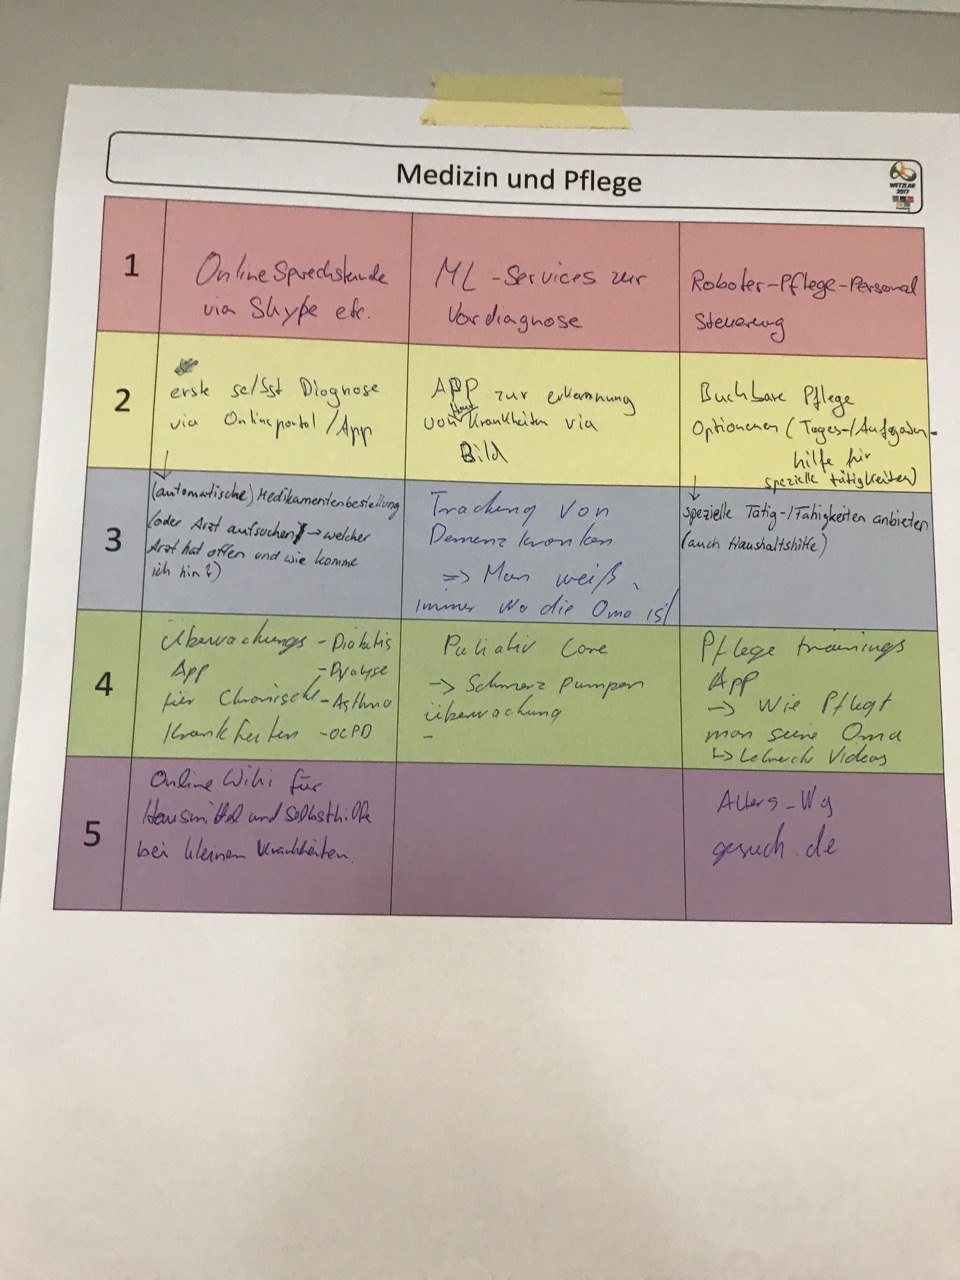 Medizin und Pflege
WETZLAR
2017
1
Online Sprechstunde
via Skype etc.
ML-Services zur
Vordiagnose
Roboter-Pflege-Personal
Steuerung
2
erste selbst Diagnose
via Onlineportal/App
APP zur erkennung
von Haut Krankheiten via
Bild
Buchbare Pflege
Optionenen (Tages-/Aufgaben-
hilfe für
spezielle tätigkeiten)
3
(automatische) Medikamentenbestellung
(oder Arzt aufsuchen → welcher
Arzt hat offen und wie komme
ich hin?)
Tracking von
Demenz kranken
=> Man weiß
immer wo die Oma ist
spezielle Tätig-/Fähigkeiten anbieten
(auch Haushaltshilfe)
4
Überwachungs - Diabetis
App - Dyalyse
für Chronische - Asthma
Krankheiten - OCPD
Paliativ Care
-> Schmerz pumpen
überwachung
-
Pflege trainings
App
-> Wie Pflegt
man seine Oma
↳ Lehrreiche Videos
5
Online Wiki für
Hausmittel und Selbsthilfe
bei kleinen Krankheiten.
Alters-Wg
gesuch.de